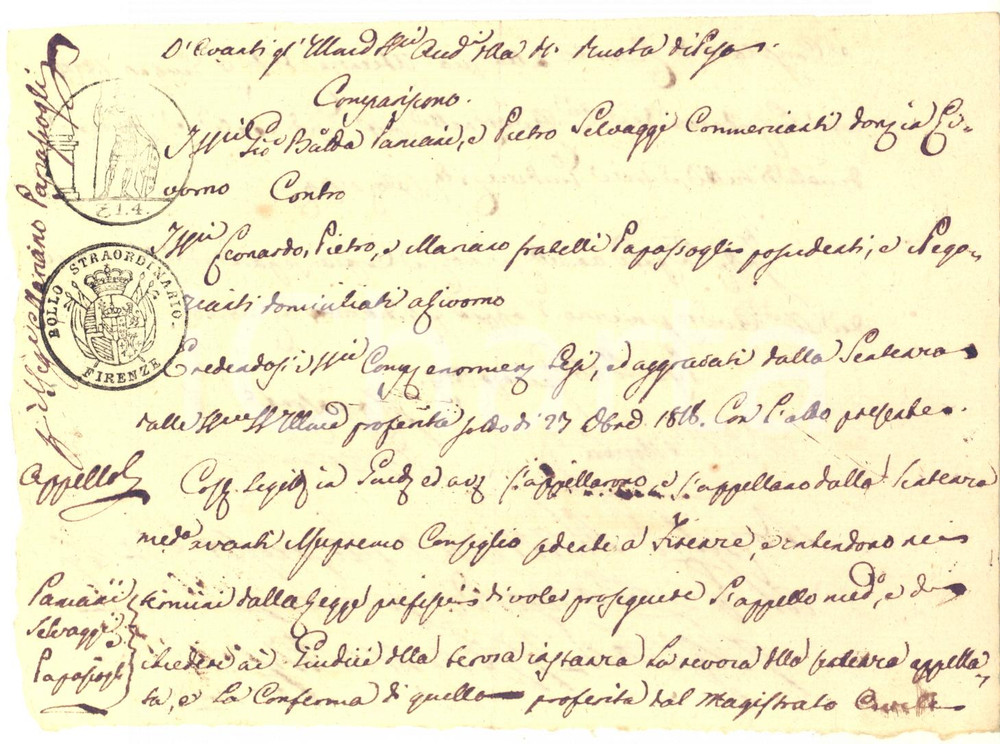 D'Avanti gl' Illmi SSri Aud. della Rl. Ruota di Pisa
Compariscono.
Gio. Batta Pansani, e Pietro Selvaggi Commercianti in Li=
vorno Contro
Leonardo, Pietro, e Mariano fratelli Papasogli possidenti, e Nego=
zianti domiciliati a Livorno
Credendosi Compti enormente lesi, ed aggravati dalla Sentenza
dalle proferita sotto di 27 1818. Con l'atto presente
Appello
appellarono e s'appellano dalla Sentenza
medа avanti il Supremo Consiglio sedente a Firenze, e intendono nei
termini dalla Legge prefissi di voler proseguire l'appello medo, e di
chiedere ai Giudici della terza instanza la revoca della sentenza appella=
ta, e la Conferma di quella proferita dal Magistrato Civile
Pansani
Selvaggi
e
Papasogli
Mariano Papasogli
£ 1.4.
BOLLO STRAORDINARIO.
FIRENZE